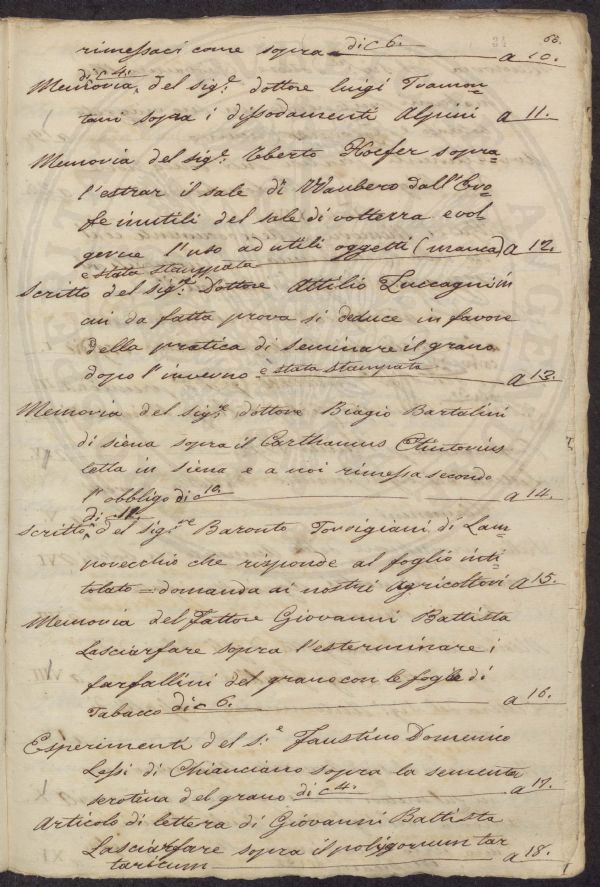 66.
rimessaci come sopra di c 6. a 10.
di c 4.
Memoria, del sig.e dottore luigi Tramon=
tani sopra i dissodamenti Alpini a 11.
Memoria del sig.e Uberto Hoefer sopra
l'estrar il sale di Wlaubero dall'Cro=
fe inutili del sale di volterra e vol=
gerne l'uso ad utili oggetti (manca) a 12.
è stata stampata
Scritto del sig.re Dottore Attilio Zuccagni in
cui da fatta prova si deduce in favore
della pratica di seminare il grano
dopo l'inverno è stata stampata a 13.
Memoria del sig.re dottore Biagio Bartalini
di siena sopra il Carthamus Tintorius
letta in siena e a noi rimessa secondo
l'obbligo di c 10. a 14.
di c 11.
scritto, del sig.re Baronto Torsigiani di Lam=
porecchio che risponde al foglio inti=
tolato = domanda ai nostri Agricoltori a 15.
Memoria del Fattore Giovanni Battista
Lasciarfare sopra l'esterminare i
farfallini del grano con le foglie di
Tabacco di c 6. a 16.
Esperimenti del s.e Faustino Domenico
Lessi di Chianciano sopra la sementa
serotina del grano di c 4. a 17.
Articolo di lettera di Giovanni Battista
Lasciarfare sopra il polygonum tar
taricum a 18.